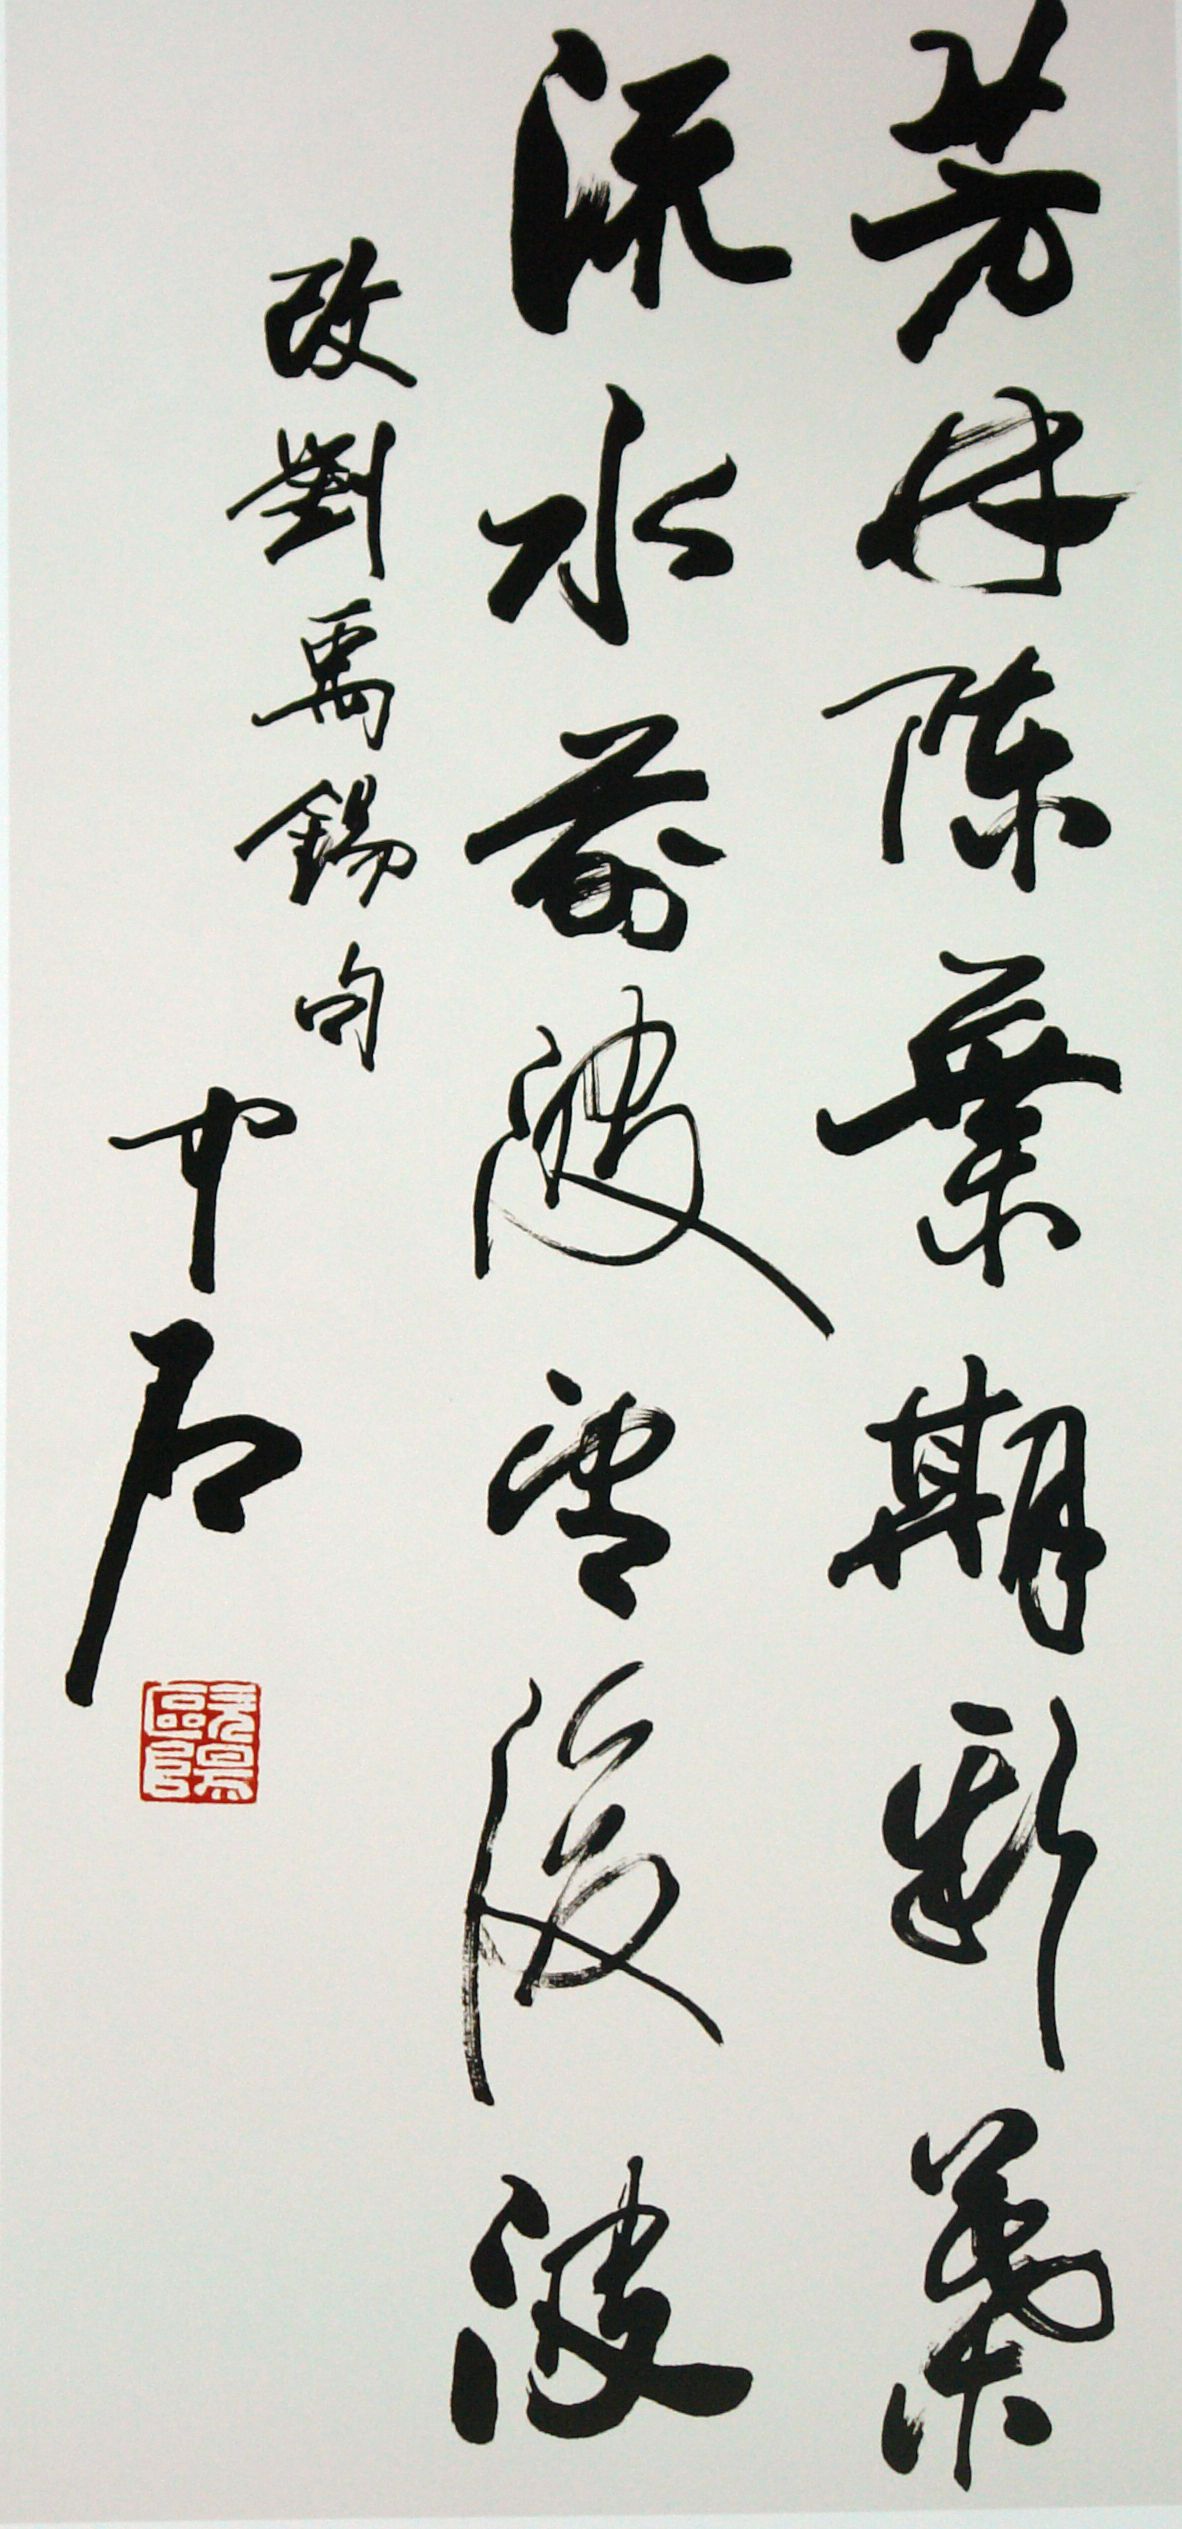 芳林陳葉期新葉
流水前波望後波
改劉禹錫句
中石
歐陽